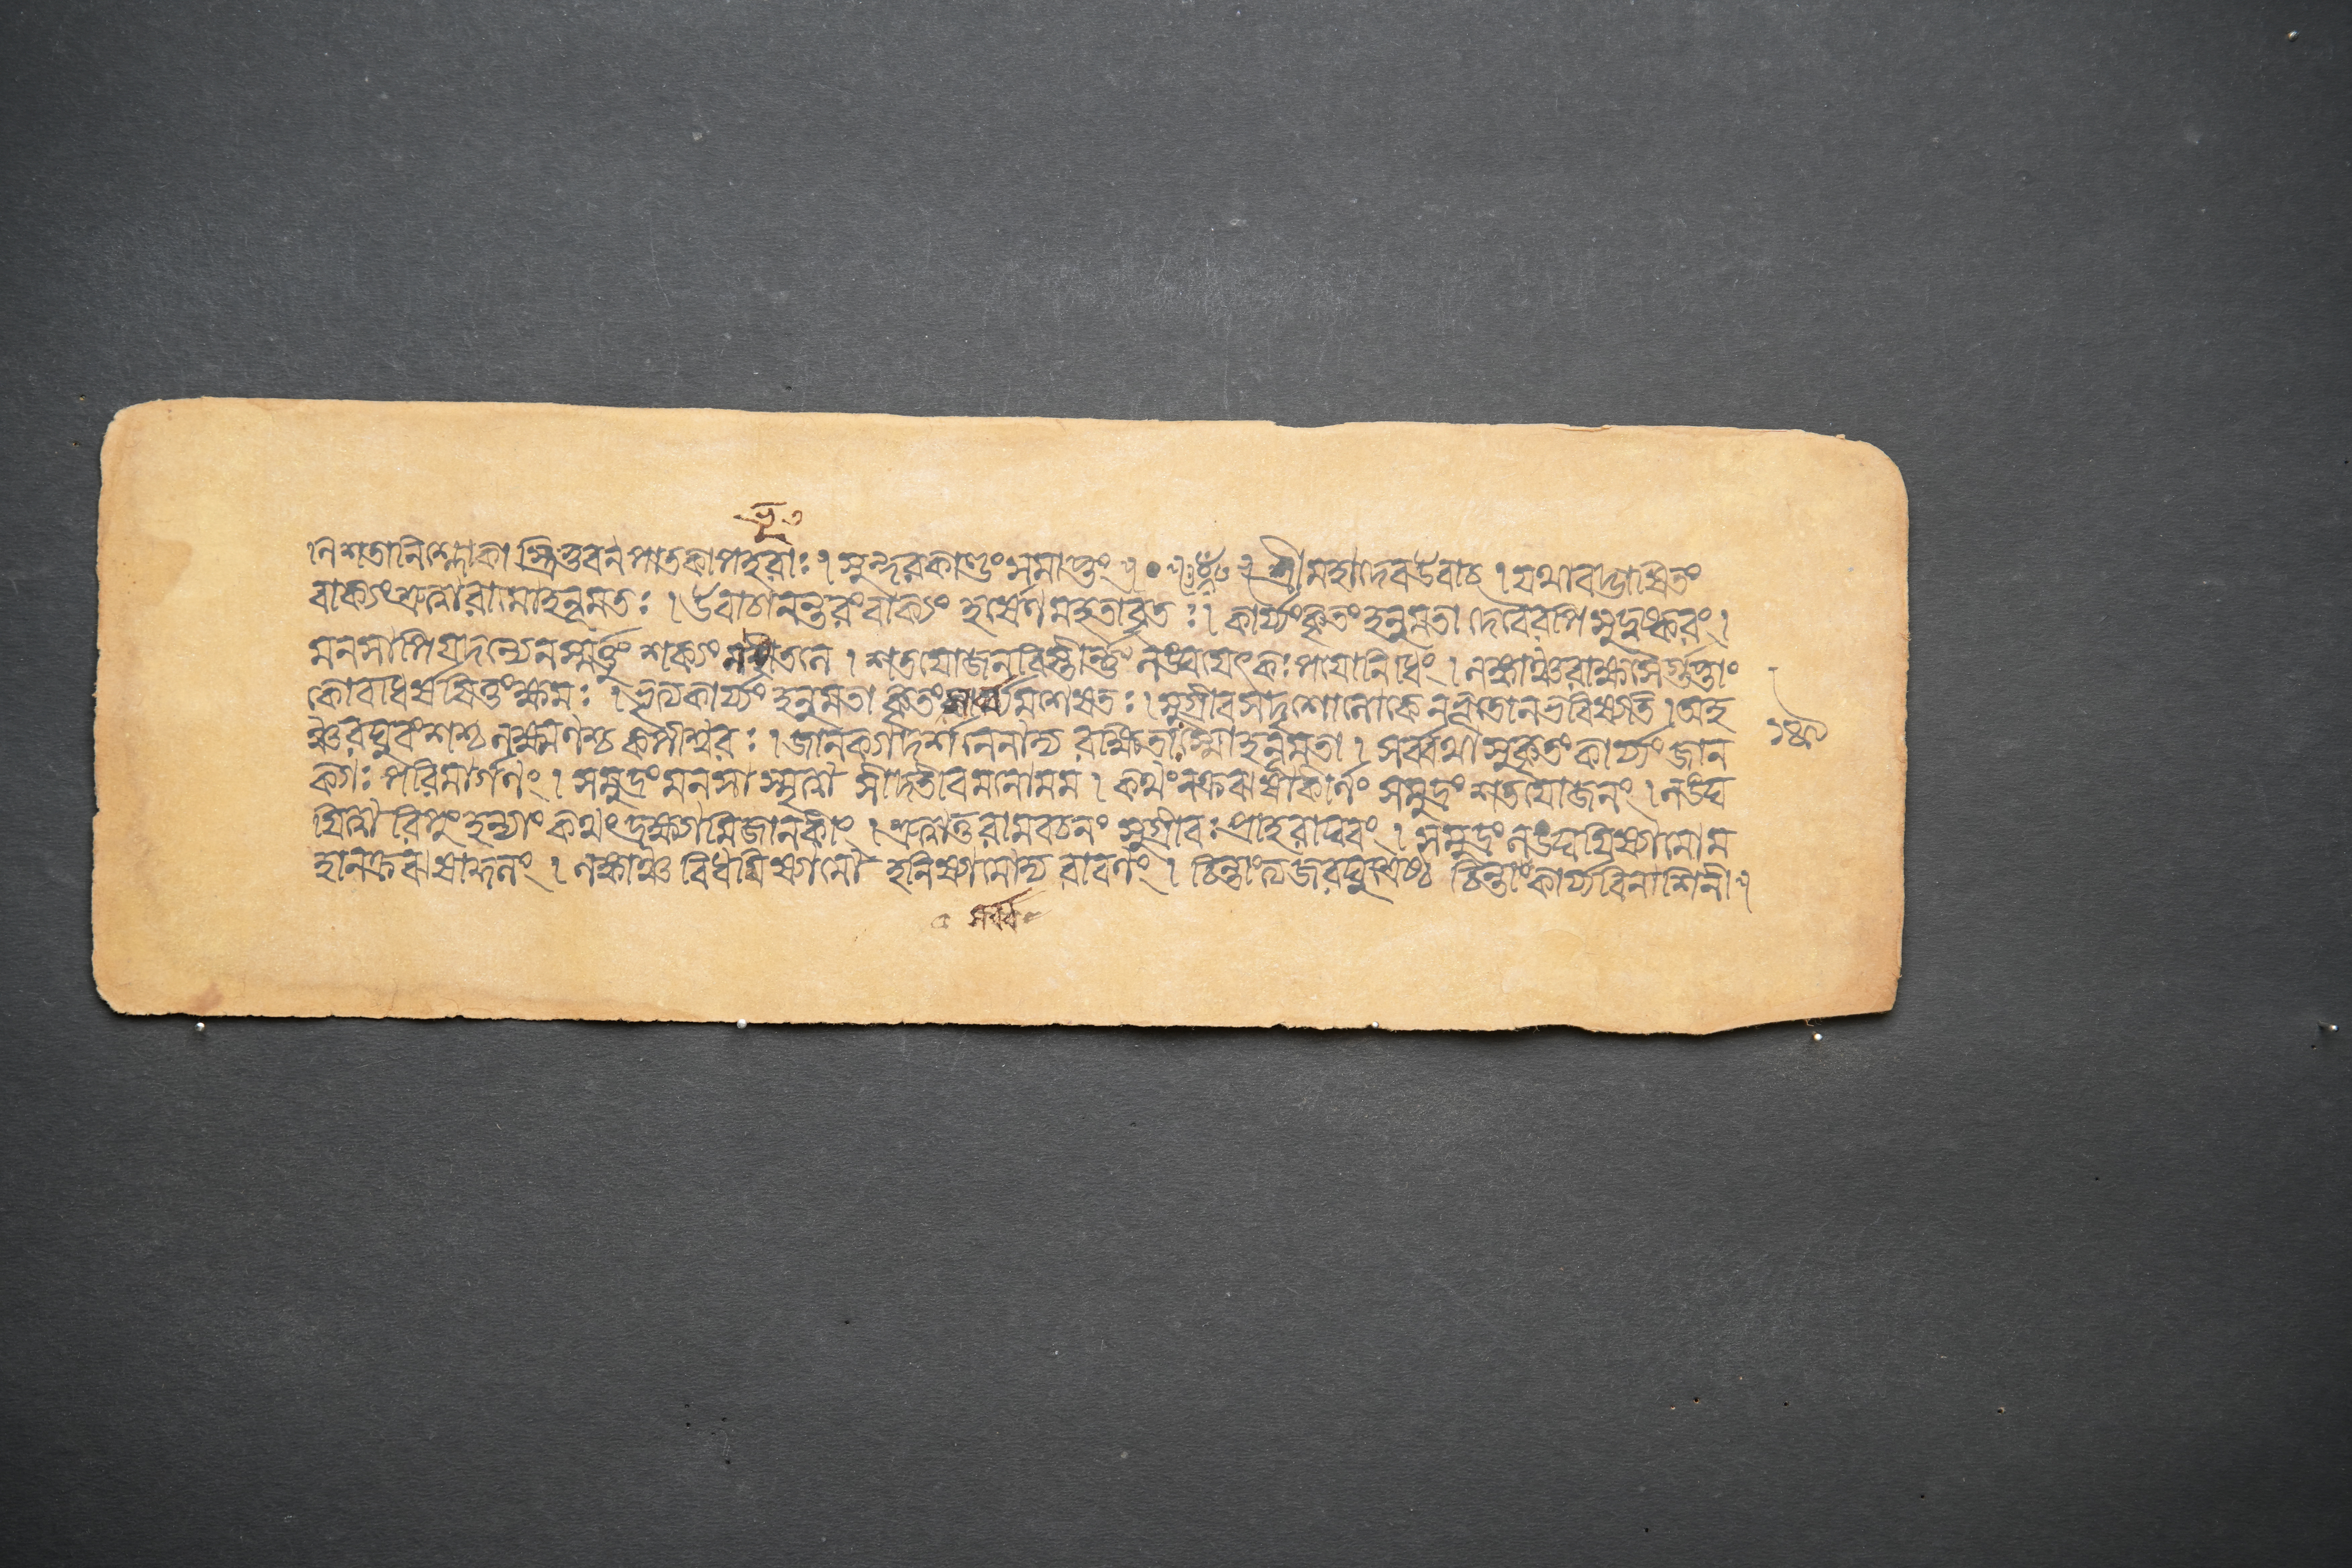 ভূ৩
নি শতানি শ্লোকা স্ত্রিভুবন পাতকাপহরাঃ । সুন্দরকাণ্ডং সমাপ্তং ॥ ০ ॥ শ্রীমহাদেব উবাচ । যথাবদ্ভাষিতং
বাক্যং শ্রুত্বা রামো হনূমতঃ । উবাচানন্তরং বাক্যং হর্ষেণ মহতাবৃতঃ । কার্য্যং কৃতং হনুমতা দেবৈরপি সুদুষ্করং ।
মনসাপি যদন্যেন স্মর্ত্তুং শক্যং ন ভূতলে । শতযোজনবিস্তীর্ণ্ণং লঙ্ঘয়েৎ কঃ পয়োনিধিং । লঙ্কাঞ্চ রাক্ষসৈর্গুপ্তাং
কো বা ধর্ষয়িতুং ক্ষমঃ । ভৃত্যকার্য্যং হনুমতা কৃতং সর্ব্বমশেষতঃ । সুগ্রীবসদৃশো লোকে ন ভূতো ন ভবিষ্যতি । অহ
ঞ্চ রঘুবংশশ্চ লক্ষ্মণশ্চ কপীশ্বরঃ । জানক্যা দর্শনেনাদ্য রক্ষিতাঃ স্মো হনূমতা । সর্ব্বথা সুকৃতং কার্য্যং জান
ক্যাঃ পরিমার্গণং । সমুদ্রং মনসা স্মৃত্বা সীদতীব মনো মম । কথং নক্রঝষাকীর্ণং সমুদ্রং শতযোজনং । লঙ্ঘ
য়িত্বা রিপুং হন্যাং কথং দ্রক্ষ্যামি জানকীং । শ্রুত্বা তু রামবচনং সুগ্রীবঃ প্রাহ রাঘবং । সমুদ্রং লঙ্ঘয়িষ্যামো ম
হানক্রঝষাকুলং । লঙ্কাঞ্চ বিধমিষ্যামো হনিষ্যামোদ্য রাবণং । চিন্তাং ত্যজ রঘুশ্রেষ্ঠ চিন্তা কার্য্যবিনাশিনী ॥
সর্ব্ব